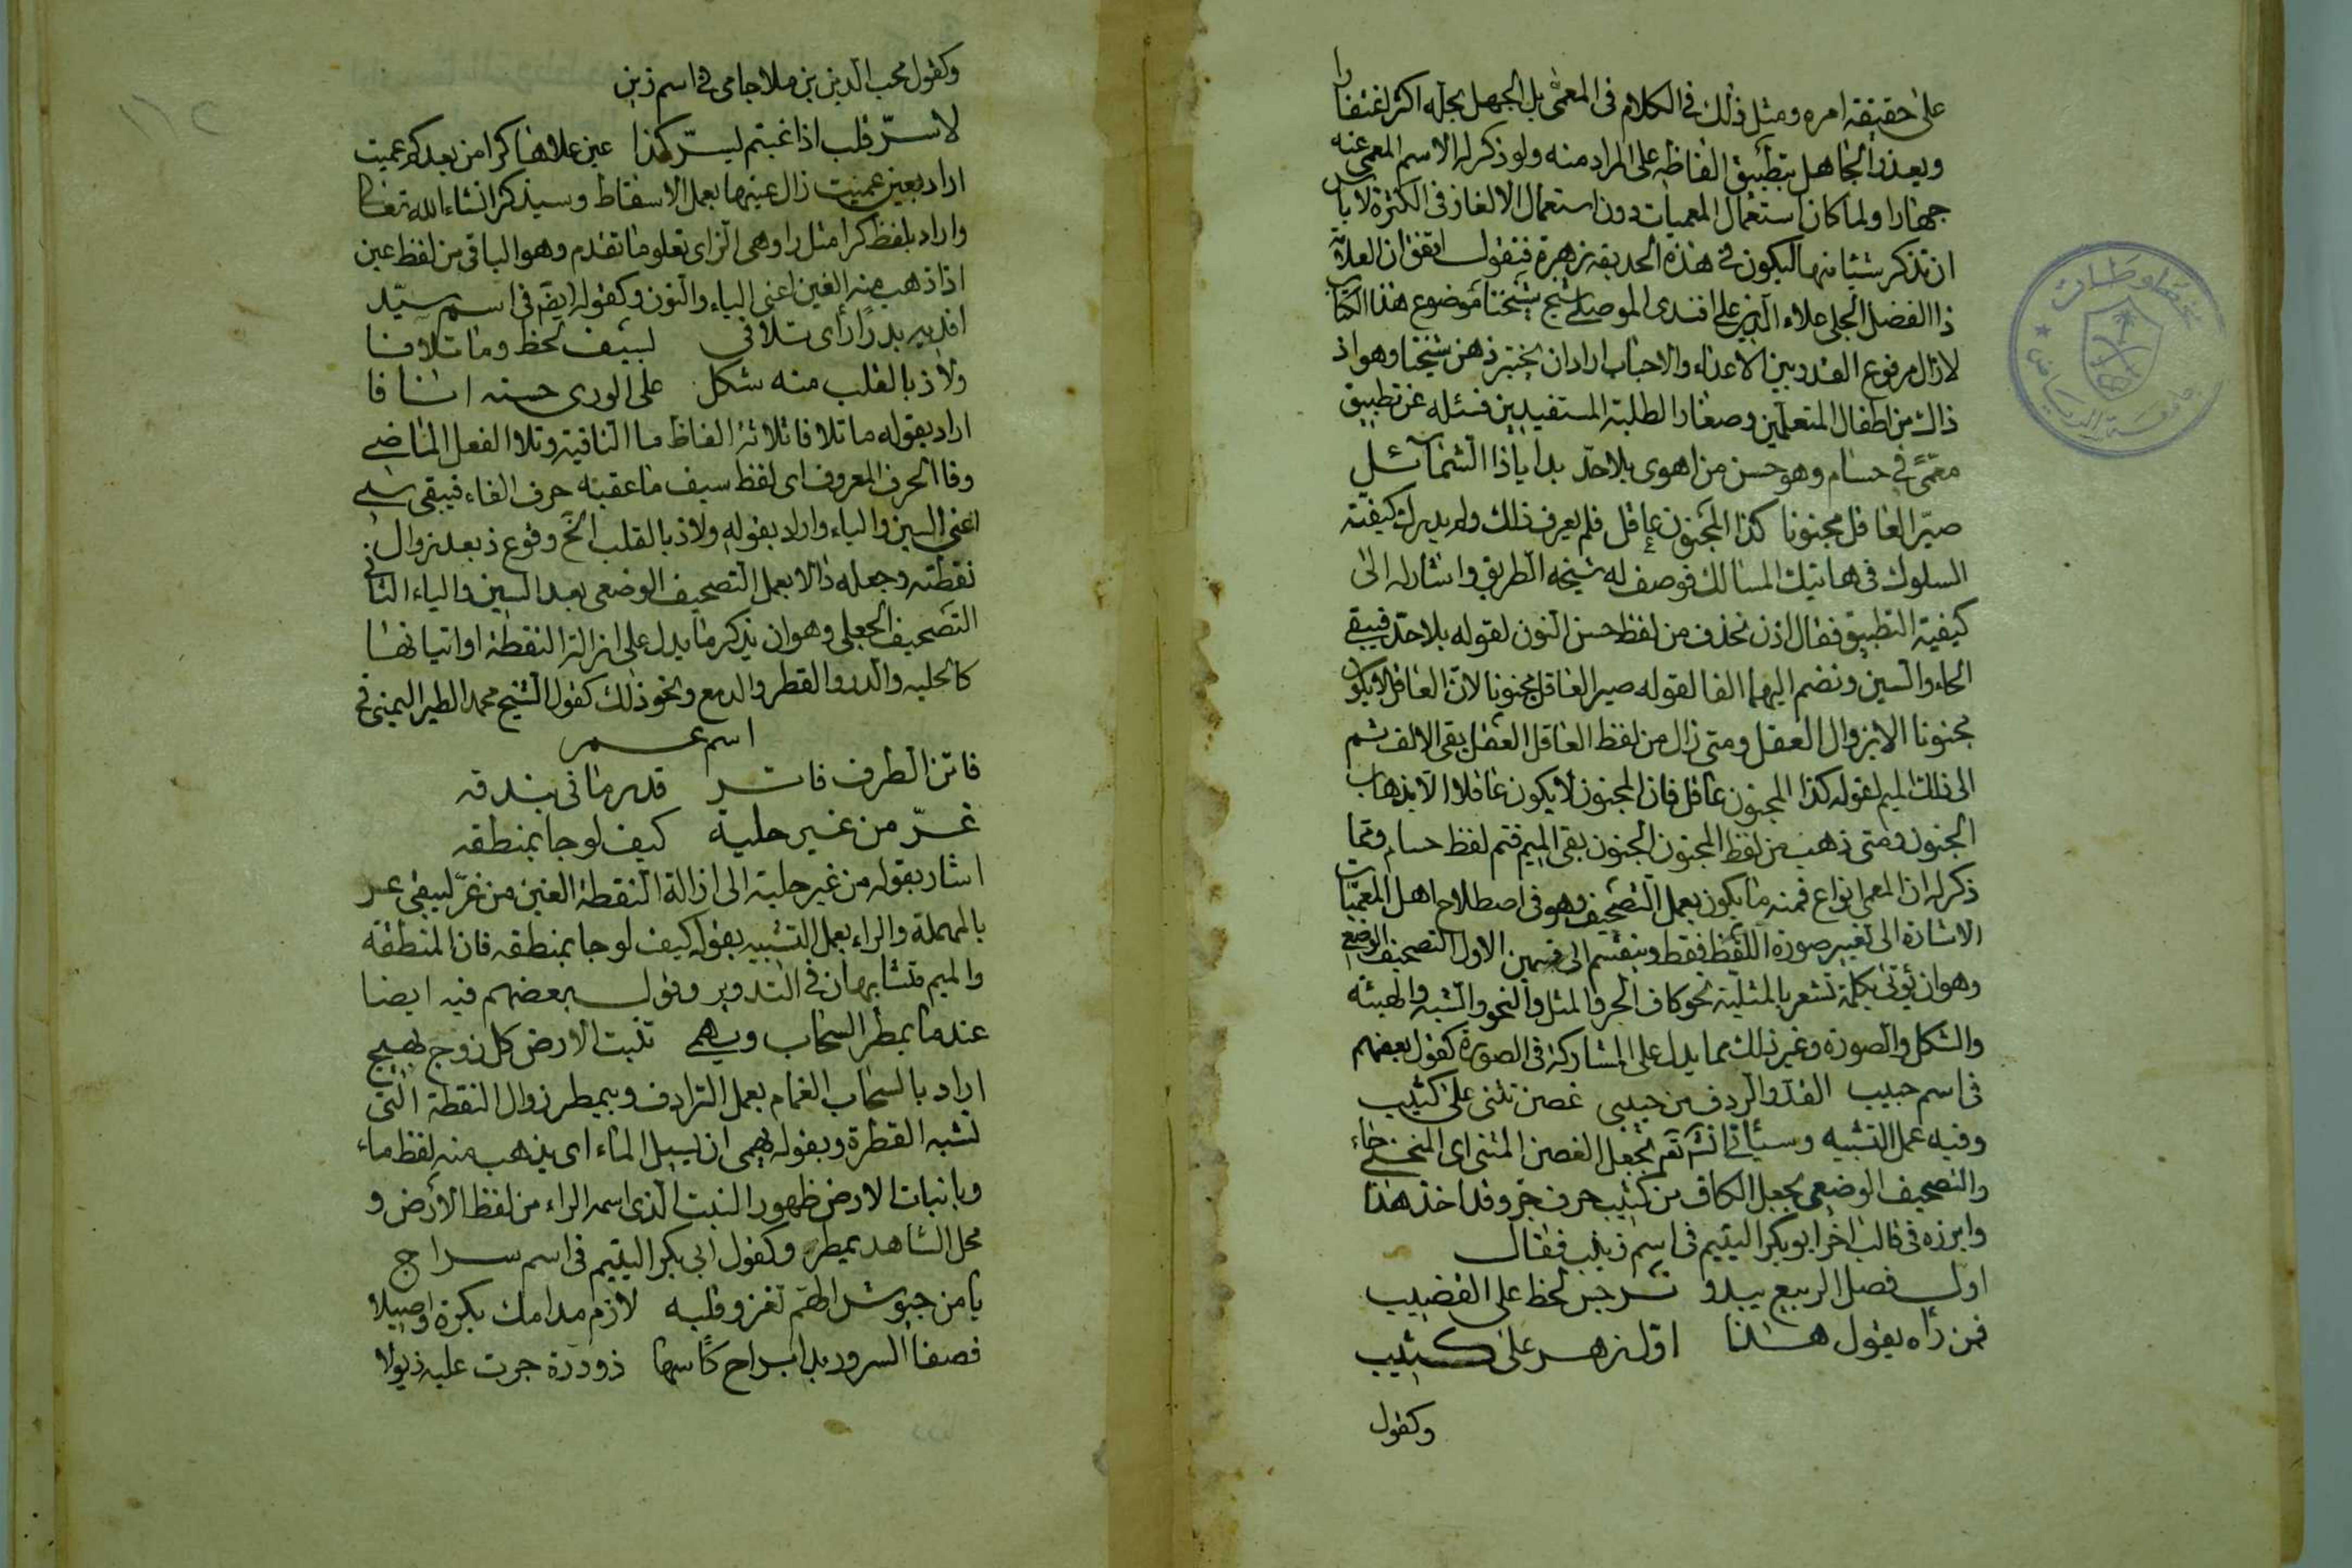 على حقيقة امره ومثل ذلك في الكلام في المعمى بل الجهل بحله اكثر اغتفارا
ويعذر الجاهل بتطبيق الفاظه على المراد منه ولو ذكر له الاسم المعمى عنه
جهارا ولما كان استعمال المعميات دون استعمال الالغاز في الكثرة لا باس
ان نذكر شيئا منها ليكون في هذه الحديقة زهرة فنقول اتفق ان العلامة
ذا الفضل الجلي علاء الدين علي افندى الموصلي شيخ شيخنا موضوع هذا الكتاب
لازال مرفوع القدر بين الاعداء والاحباب اراد ان يختبر ذهن شيخنا وهو اذ
ذاك من اطفال المتعلمين وصغار الطلبة المستفيدين فسئله عن تطبيق
معمّى في حسام وهو حسن من اهوى بلا حدّ بدا ياذا الشمائل
صيّر العاقل مجنونا كذا المجنون عاقل فلم يعرف ذلك ولم يدرك كيفية
السلوك في هاتيك المسالك فوصف له شيخه الطريق واشار له الى
كيفية التطبيق فقال اذن نحذف من لفظ حسن النون لقوله بلا حدّ فيبقى
الحاء والسين ونضم اليهما الفا لقوله صير العاقل مجنونا لان العاقل لا يكون
مجنونا الا بزوال العقل ومتى زال من لفظ العاقل العقل بقي الالف ثم
الى ذلك الميم لقوله كذا المجنون عاقل فان المجنون لا يكون عاقلا الا بذهاب
الجنون ومتى ذهب من لفظ المجنون الجنون بقي الميم فتم لفظ حسام ومما
ذكر له ان المعمى انواع فمنه ما يكون بعمل التصحيف وهو في اصطلاح اهل المعميات
الاشارة الى تغيير صورة اللفظ فقط وينقسم الى قسمين الاول التصحيف الوضعي
وهو ان يؤتى بكلمة تشعر بالمثلية نحو كاف الجر والمثل والنحو والشبه والهيئة
والشكل والصورة وغير ذلك مما يدل على المشاركة في الصورة كقول بعضهم
في اسم حبيب القد والردف من حبيبى غصن تثنى على كثيب
وفيه عمل التشبيه وسيأتي انشا الله تعم بجعل الغصن المثنى اى المنحنى حاء
والتصحيف الوضعي بجعل الكاف من كثيب حرف جر وقد اخذ هذا
وابرزه في قالب اخر ابو بكر اليتيم في اسم زينب فقال
اول فصل الربيع يبدو نرجس لحظ على القضيب
فمن رأه يقول هذا اول زهر على كثيب
وكقول
وكقول محب الدين بن ملا جامى في اسم زين
لا سرّ قلب اذا غبتم ليسرّ كذا عين علاها كرا من بعدكم عميت
اراد بعين عميت زال عينها بعمل الاسقاط وسيذكر انشاء الله تعالى
واراد بلفظ كرا مثل را وهى الزاى تعلو ما تقدم وهو الباقى من لفظ عين
اذا ذهب منه العين اعنى الياء والنون وكقوله ايضا في اسم سيّد
افديه بدرًا رأى تلافى لسيف لحظ وما تلافا
ولاذ بالقلب منه شكل على الورى حسنه انافا
اراد بقوله ما تلافا ثلاثة الفاظ ما النافية وتلا الفعل الماضي
وفا الحرف المعروف اى لفظ سيف ما عقبه حرف الفاء فيبقى سي
اعنى السين والياء واراد بقوله ولاذ بالقلب الخ وقوع ذ بعد زوال
نقطته وجعله دالا بعمل التصحيف الوضعى بعد السين والياء الثانى
التصحيف الجعلى وهو ان يذكر ما يدل على ازالة النقطة او اتيانها
كالحلية والدر والقطر والدمع ونحو ذلك كقول الشيخ محمد الطير اليمنى في
اسم عمر
فاتن الطرف فاتر قد رمانى ببندقه
غرّ من غير حلية كيف لو جا بمنطقه
اشار بقوله من غير حلية الى ازالة النقطة الغين من غرّ ليبقى عر
بالمهملة والراء بعمل التشبيه بقوله كيف لو جا بمنطقه فان المنطقة
والميم متشابهان في التدوير وقول بعضهم فيه ايضا
عندما يمطر السحاب ويهمى تنبت الارض كل زوج بهيج
اراد بالسحاب الغمام بعمل الترادف وبيمطر زوال النقطة التى
تشبه القطرة وبقوله يهمى ان يسيل الماء اى يذهب منه لفظ ماء
وبانبات الارض ظهور النبت الذى اسمه الراء من لفظ الأرض و
محل الشاهد يمطر وكقول ابى بكر اليتيم في اسم سراج
يا من جيوش الهم تغزو قلبه لازم مدامك بكرة واصيلا
فصفا السرور بدا براح كأسها ذو درة جرت عليه ذيولا